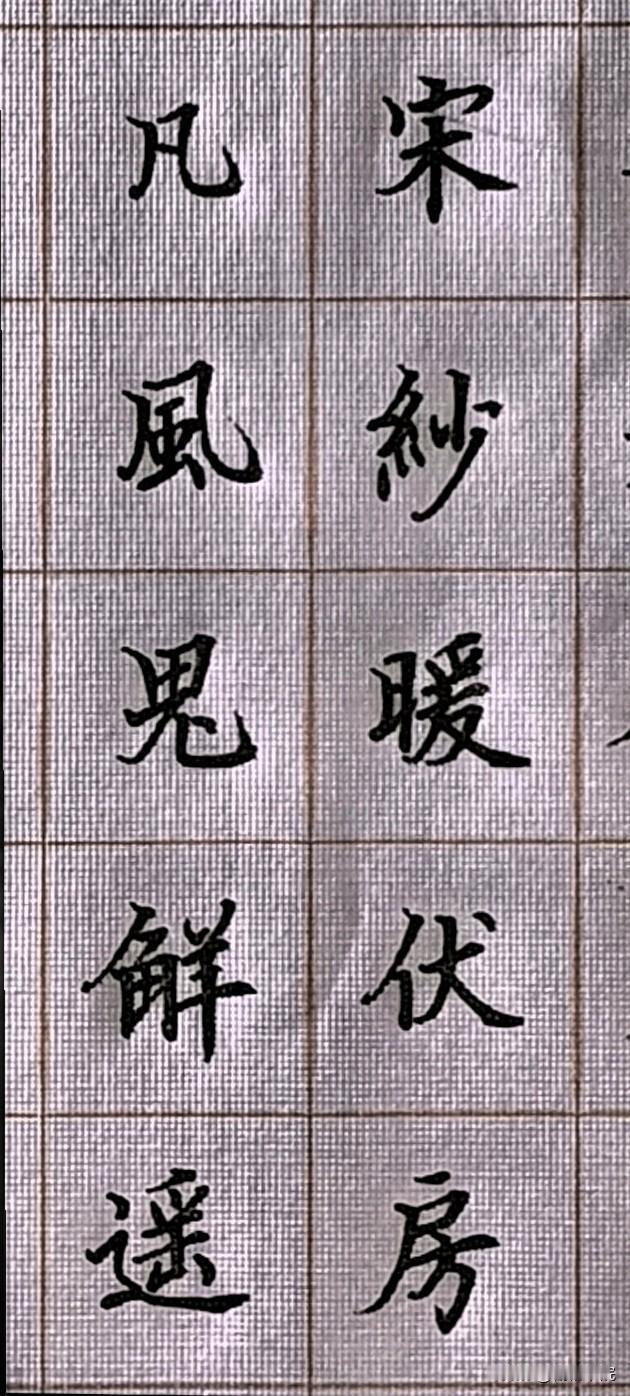 宋紗暖伏房
凡風鬼鮮遥